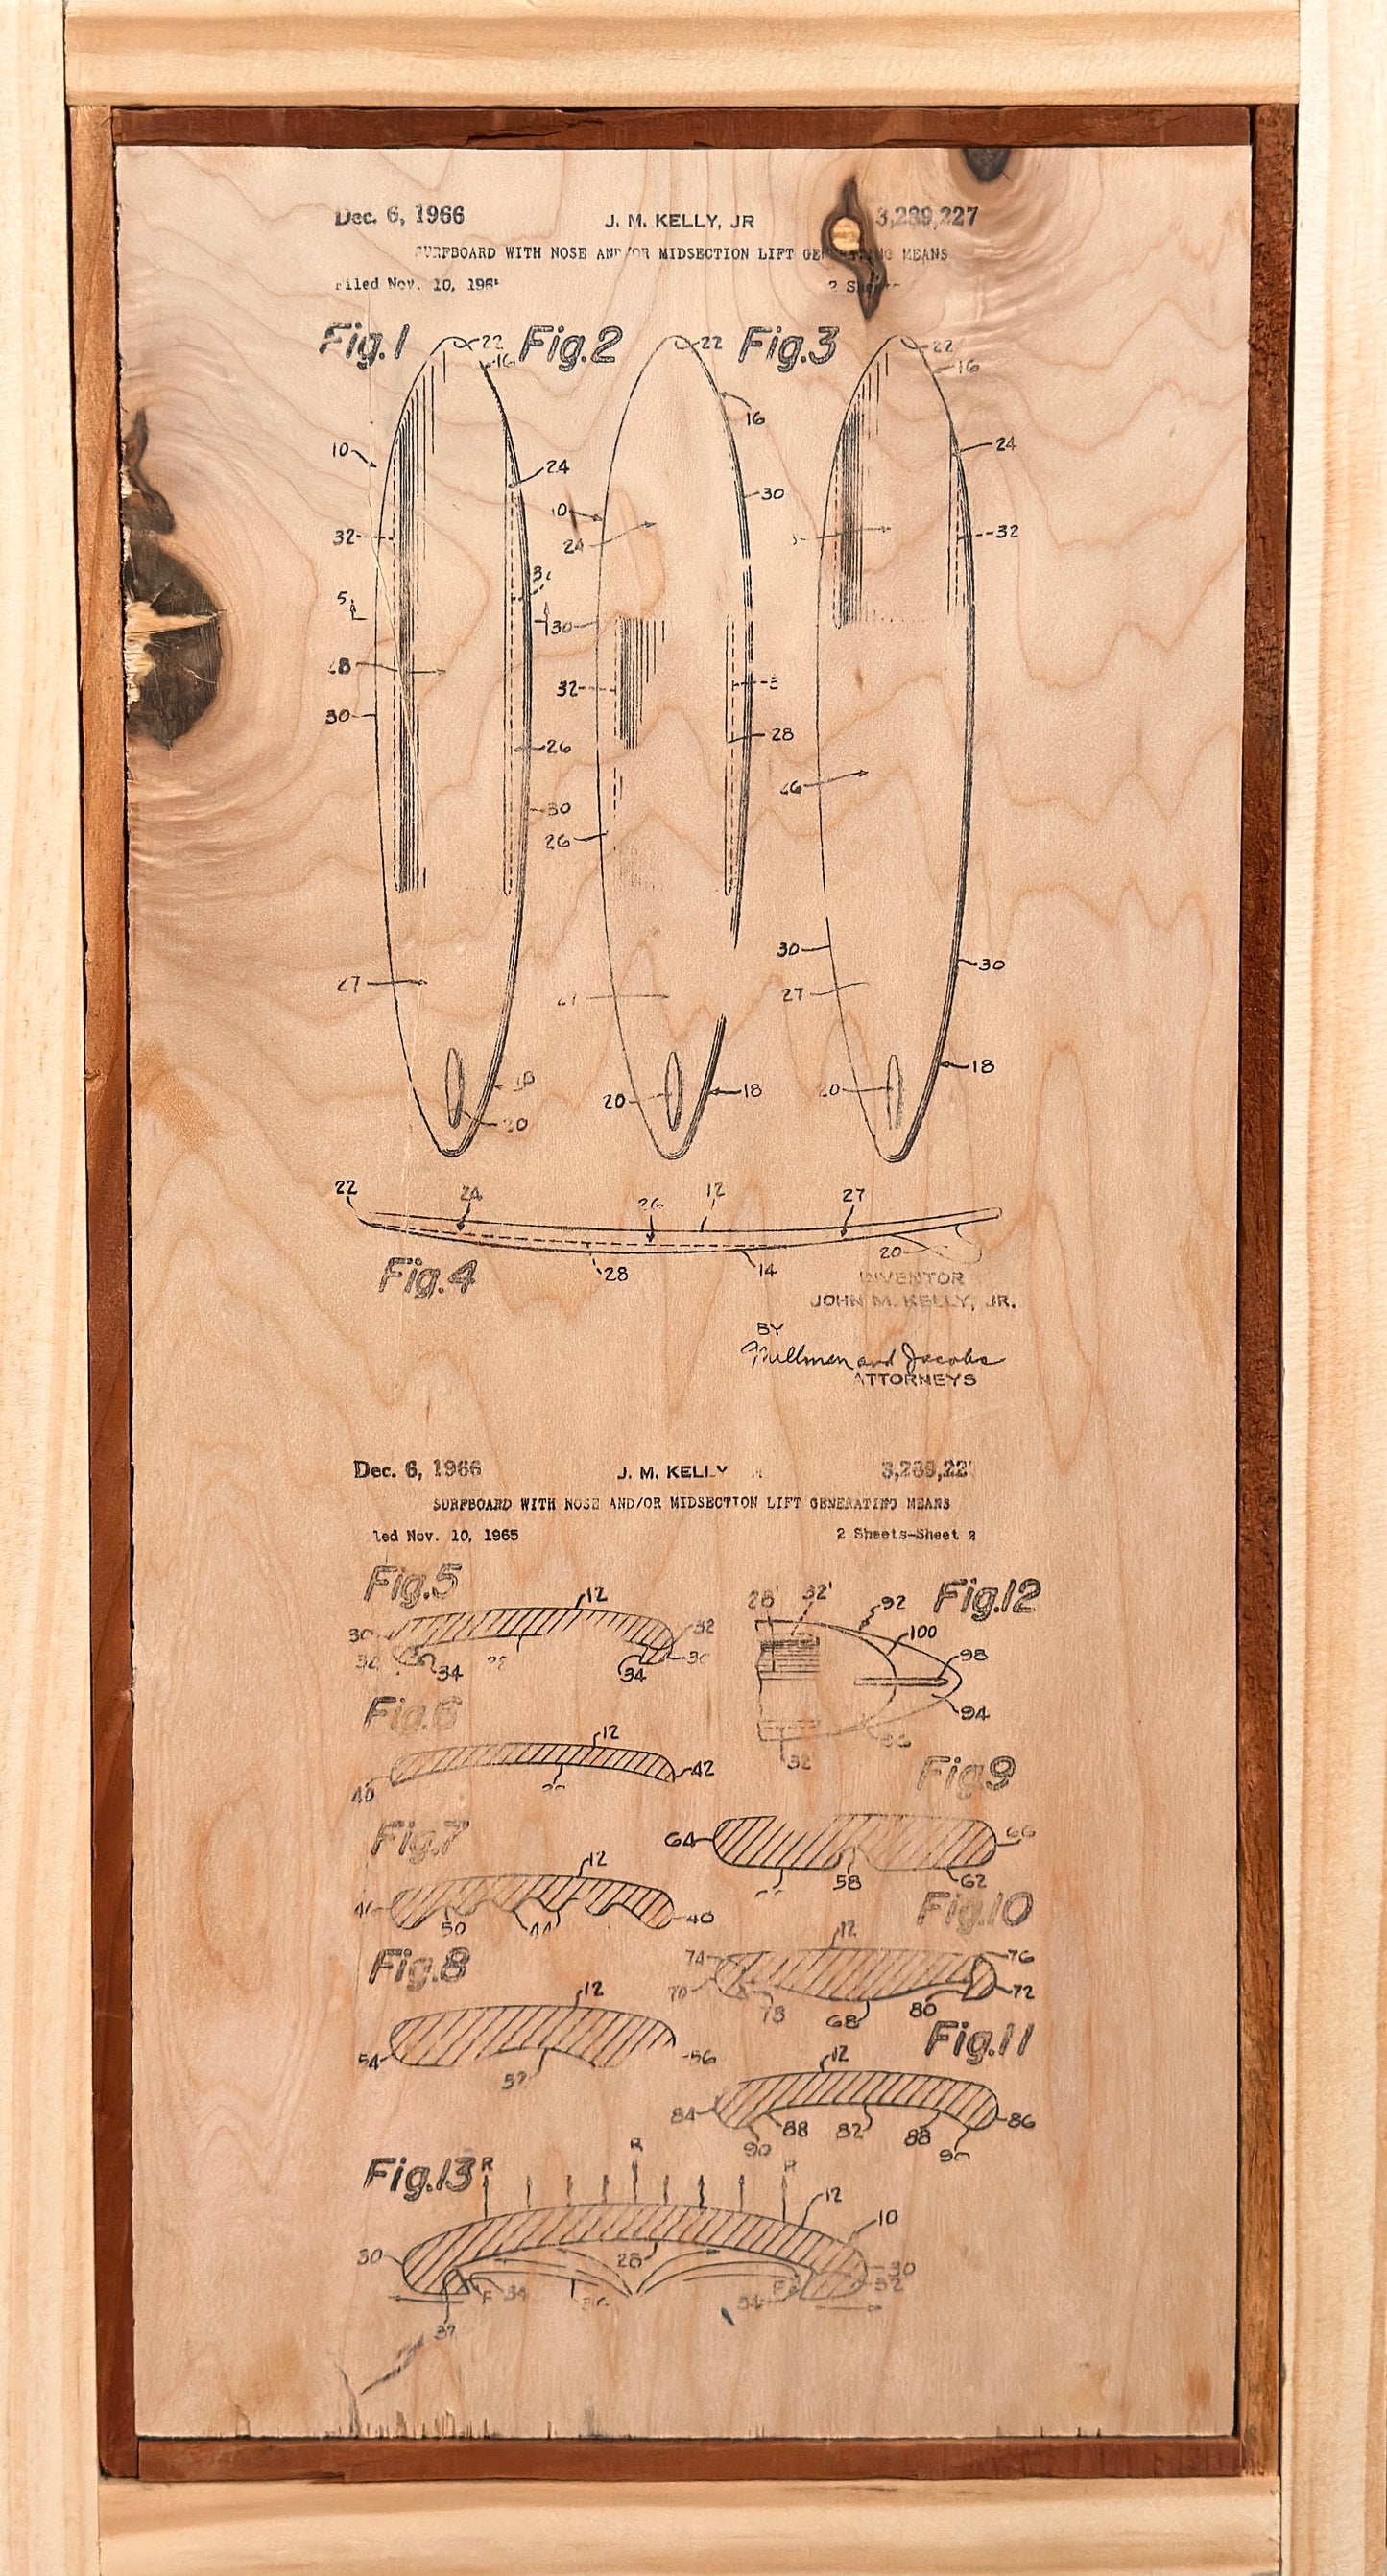 Dec. 6, 1966 J. M. KELLY, JR 3,289,227
SURFBOARD WITH NOSE AND/OR MIDSECTION LIFT MEANS
Filed Nov. 10,
Fig.1 22 Fig.2 22 Fig.3 22
16 16 16
10 24 30 24
10
32 24 32
5 30
32 28
30 26
30 26
30 30
27 27
18 18
20 20 18 20
20
22 24 26 12 27
20
Fig.4 28 14
INVENTOR
JOHN M. KELLY, JR.
BY
Millman and Jacobs
ATTORNEYS
Dec. 6, 1966 J. M. KELLY
SURFBOARD WITH NOSE AND/OR MIDSECTION LIFT GENERATING MEANS
Nov. 10, 1965 2 Sheets-Sheet 2
Fig.5 12 28' 32' 92 Fig.12
30 32 100
34 34 98
94
Fig.6 12 32
40 42
Fig.9
Fig.7 12 64 66
50 44 40 58 62
Fig.10
Fig.8 12 12 74 76
70 72
78 68 80
54 56 Fig.11
52 12
84 86
88 82 88
90 90
Fig.13 R R R
12
10
30 28 30
32
F 34
34